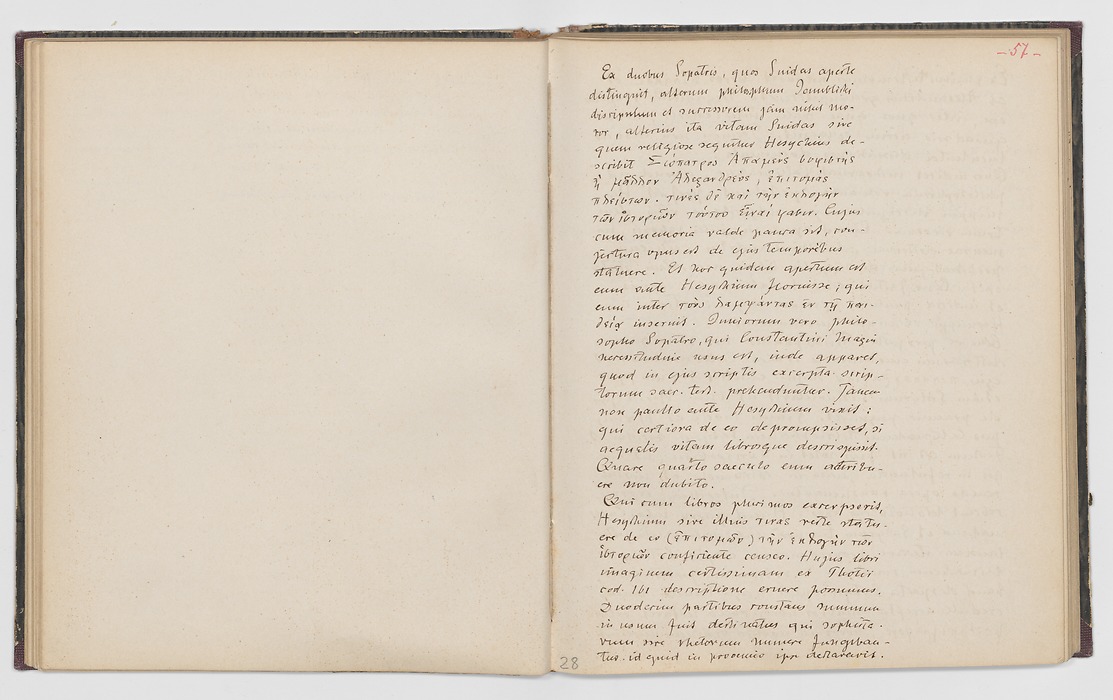 - 57 -
Ex duobus Sopatris, quos Suidas aperte
distinguit, alterum philosophum Iamblichi
discipulum et successorem jam nihil mo-
ror, alterius ita vitam Suidas sive
quem religiose sequitur Hesychius de-
scribit Σώπατρος Ἀπαμεὺς σοφιστὴς
ἢ μᾶλλον Ἀλεξανδρεύς, ἐπιτομὰς
πλείστων. τινὲς δὲ καὶ τὴν ἐκλογὴν
τῶν ἱστοριῶν τούτου εἶναί φασιν. Cujus
cum memoria valde pauca sit, con-
jectura opus est de ejus temporibus
statuere. Et hoc quidem apertum est
eum ante Hesychium floruisse; qui
eum inter τοὺς λαμψάντας ἐν τῇ παι-
δείᾳ inseruit. Juniorem vero philo-
sopho Sopatro, qui Constantini Magni
necessitudine usus est, inde apparet,
quod in ejus scriptis excerpta scrip-
torum saec. tert. prehenduntur. Tamen
non paullo ante Hesychium vixit:
qui certiora de eo deprompsisset, si
aequalis vitam librosque descripsisset.
Quare quarto saeculo eum attribu-
ere non dubito.
Qui cum libros plurimos excerpserit,
Hesychium sive illius τινὰς recte statu-
ere de eo (ἐπιτομῶν) τὴν ἐκλογὴν τῶν
ἱστοριῶν conficiente censeo. Hujus libri
imaginem certissimam ex Photii
cod. 161 descriptione eruere possumus.
Duodecim partibus constans
in usum fuit destinatus qui sophista-
rum sive rhetorum munere fungeban-
tur. id quid in prooemio ipse declaravit.
28